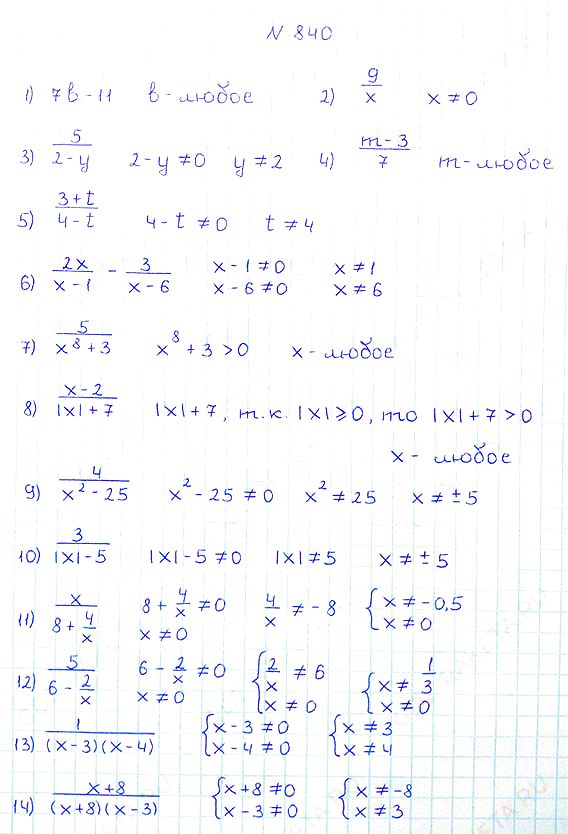 N 840
1) 7b-11 b-любое 2) 9/x x ≠ 0
3) 5/(2-y) 2-y ≠ 0 y ≠ 2 4) (m-3)/7 m-любое
5) (3+t)/(4-t) 4-t ≠ 0 t ≠ 4
6) 2x/(x-1) - 3/(x-6) x-1 ≠ 0 x ≠ 1
x-6 ≠ 0 x ≠ 6
7) 5/(x⁸+3) x⁸+3 > 0 x- любое
8) (x-2)/(|x|+7) |x|+7, т.к. |x| ⩾ 0, то |x|+7 > 0
x- любое
9) 4/(x²-25) x²-25 ≠ 0 x² ≠ 25 x ≠ ±5
10) 3/(|x|-5) |x|-5 ≠ 0 |x| ≠ 5 x ≠ ±5
11) x/(8+4/x) 8+4/x ≠ 0 4/x ≠ -8 { x ≠ -0,5
x ≠ 0 x ≠ 0
12) 5/(6-2/x) 6-2/x ≠ 0 { 2/x ≠ 6 { x ≠ 1/3
x ≠ 0 x ≠ 0 x ≠ 0
13) 1/((x-3)(x-4)) { x-3 ≠ 0 { x ≠ 3
x-4 ≠ 0 x ≠ 4
14) (x+8)/((x+8)(x-3)) { x+8 ≠ 0 { x ≠ -8
x-3 ≠ 0 x ≠ 3